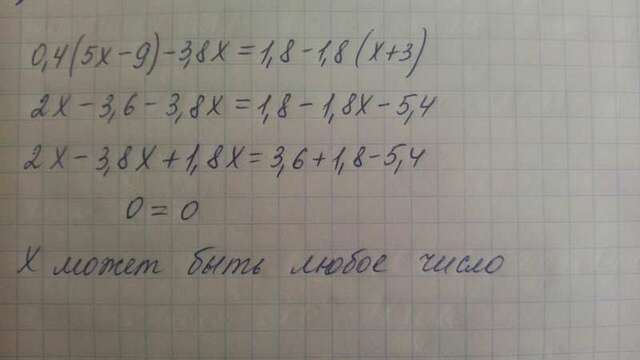 0,4(5x-9)-3,8x=1,8-1,8(x+3)
2x-3,6-3,8x=1,8-1,8x-5,4
2x-3,8x+1,8x=3,6+1,8-5,4
0=0
X может быть любое число